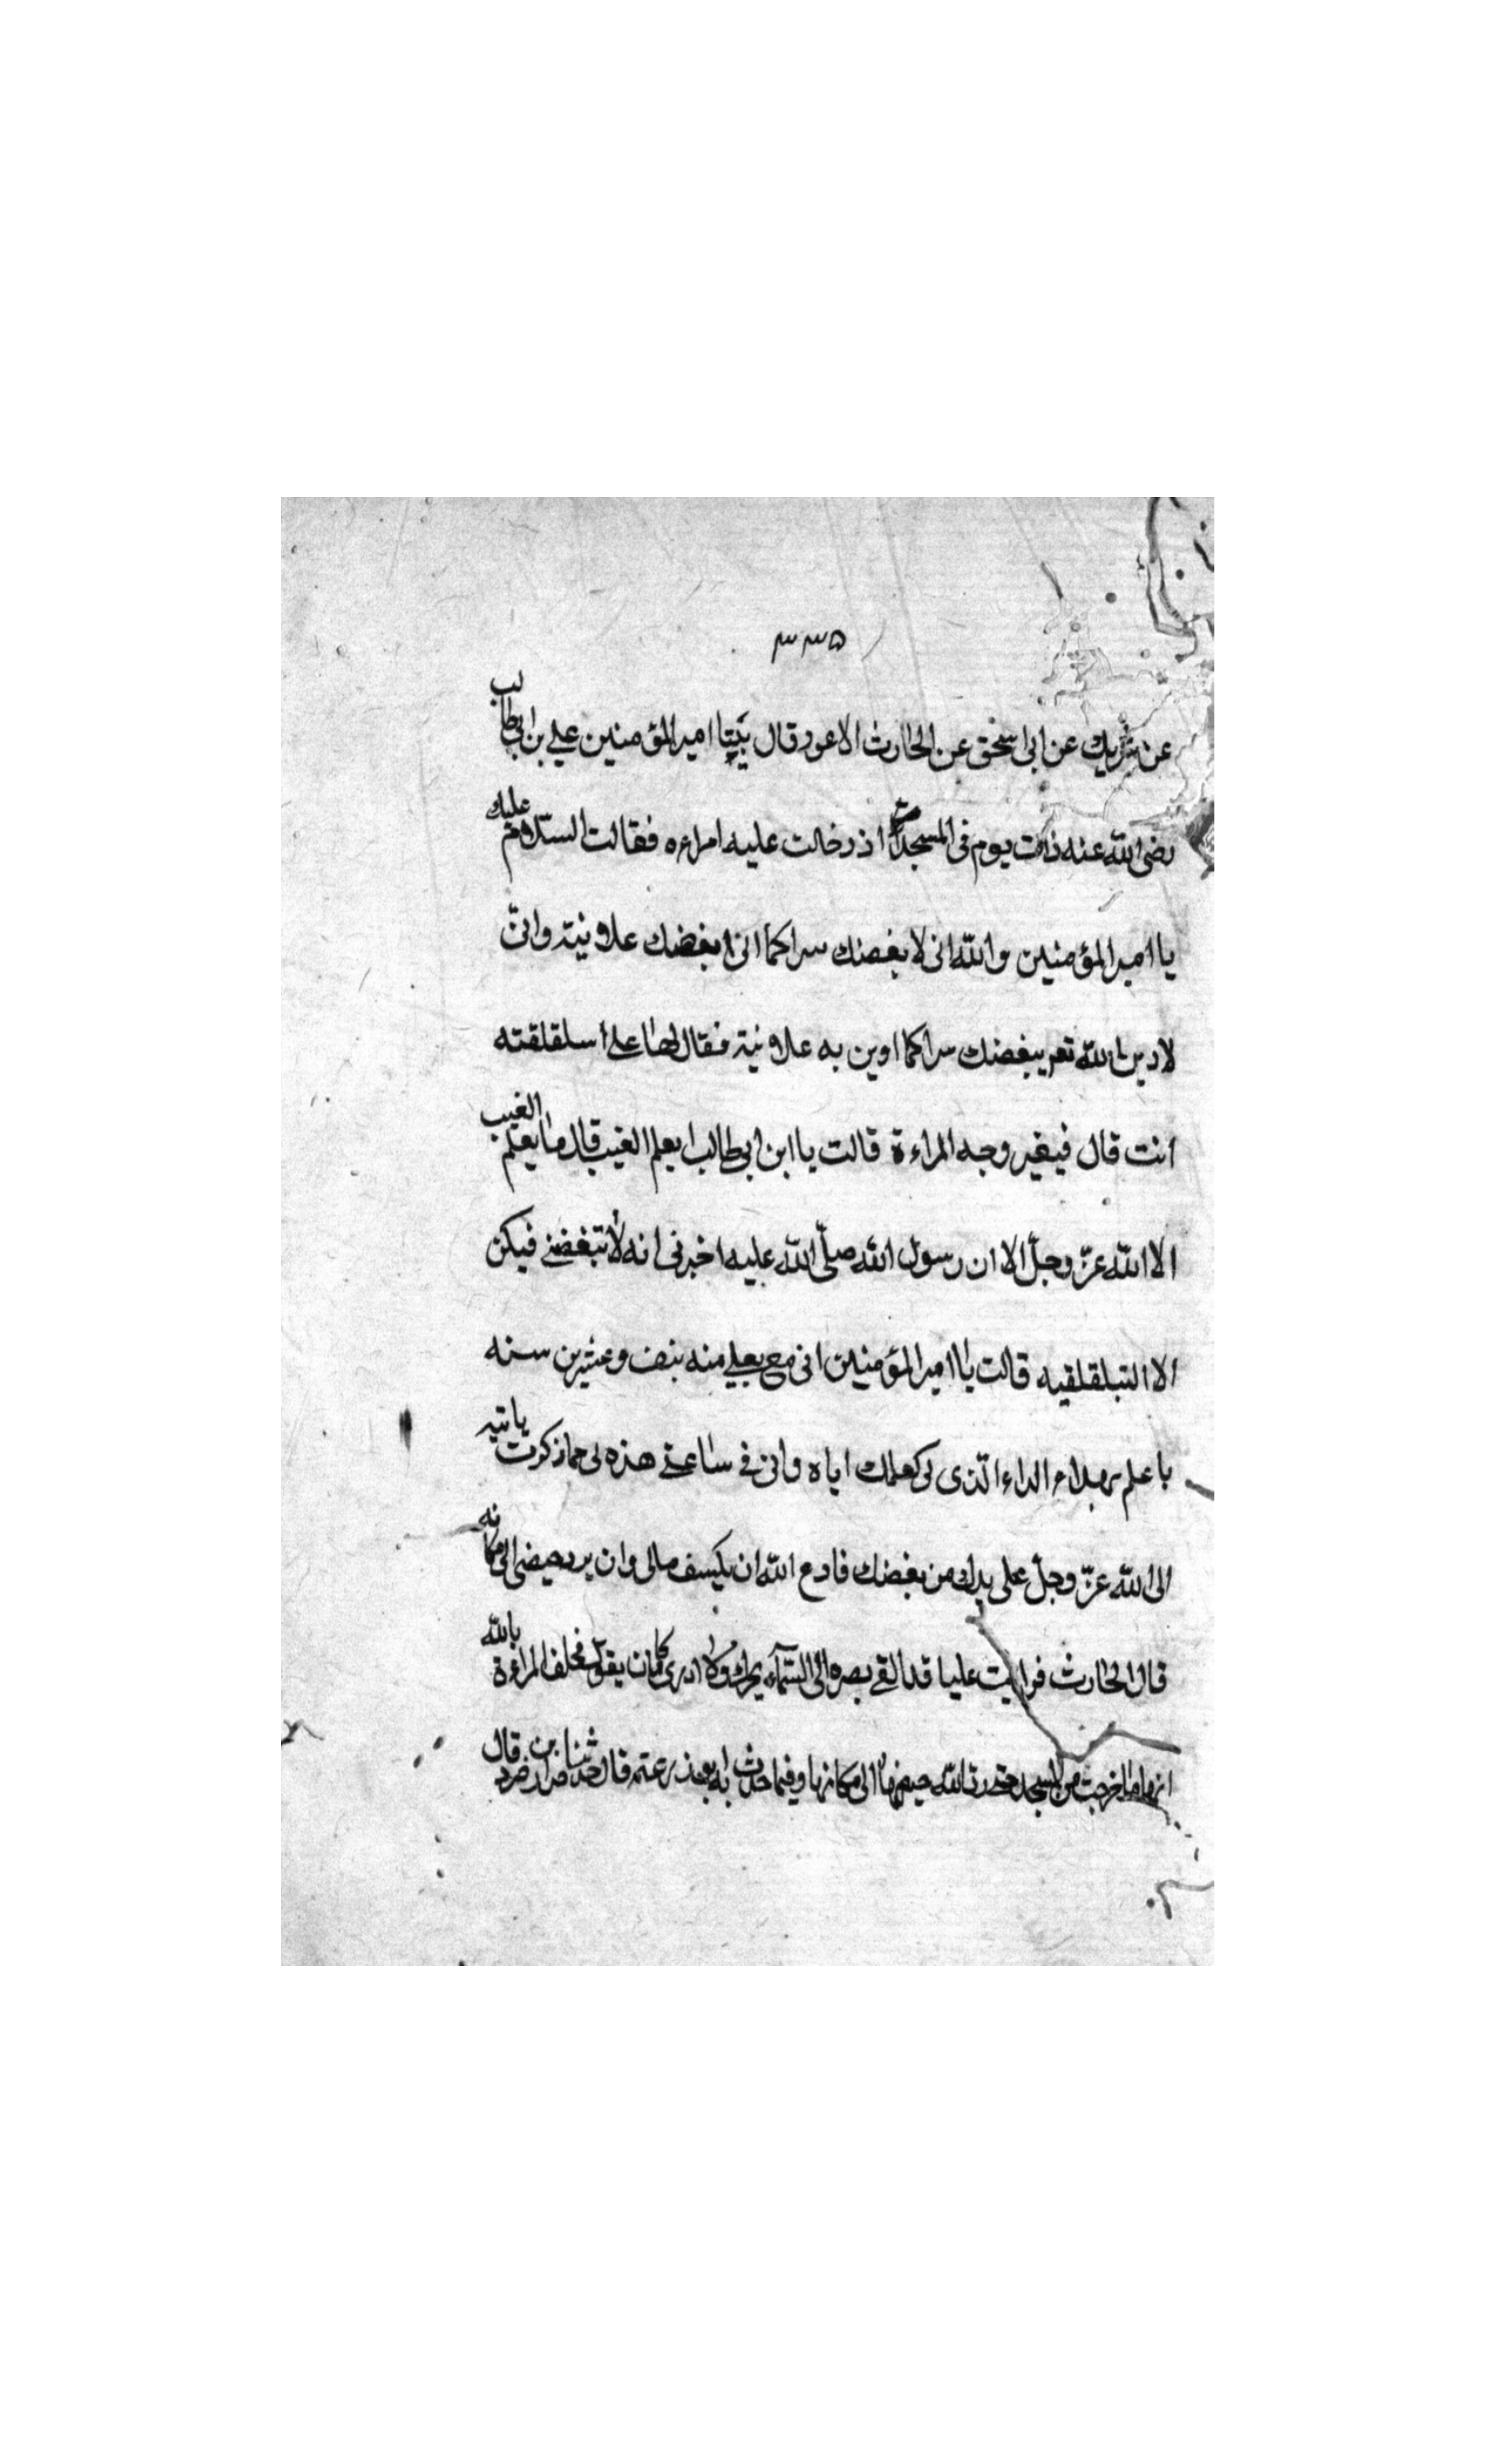 ٣٣٥
عن شريك عن ابى اسحق عن الحارث الاعور قال بينا امير المؤمنين علي بن ابي طالب
رضى الله عنه ذات يوم فى المسجد اذ دخلت عليه امراءه فقالت السلام عليك
يا امير المؤمنين والله انى لابغضك سرا كما انى ابغضك علانية وانى
لادين الله ببغضك سرا كما ادين به علانية فقال لها علي أسلقلقته
انت قال فيغير وجه المراءة قالت يا ابن ابي طالب ايعلم الغيب قال ما يعلم الغيب
الا الله عز وجل الا ان رسول الله صلى الله عليه اخبرنى انه لا تبغضنى فيكن
الا قالت يا امير المؤمنين انى مع بعلي منه بنيف وعشرين سنه
با علم بهذا الداء الذى لى كعلمك اياه وانى في ساعتى هذه لى مما ذكرت يا تيه
الى الله عز وجل على يدك من بغضك فادع الله ان يكسف مالى وان يرد حيضى الى مكانه
قال الحارث فرايت عليا قد القى بصره الى السماء يحرك ولا ادرى ما كان يقول فحلف المراءة بالله
انها ما خرجت من المسجد حتى رد الله حيضها الى مكانها وفيما حدث به قال حدثنا ضرار بن صرد قال